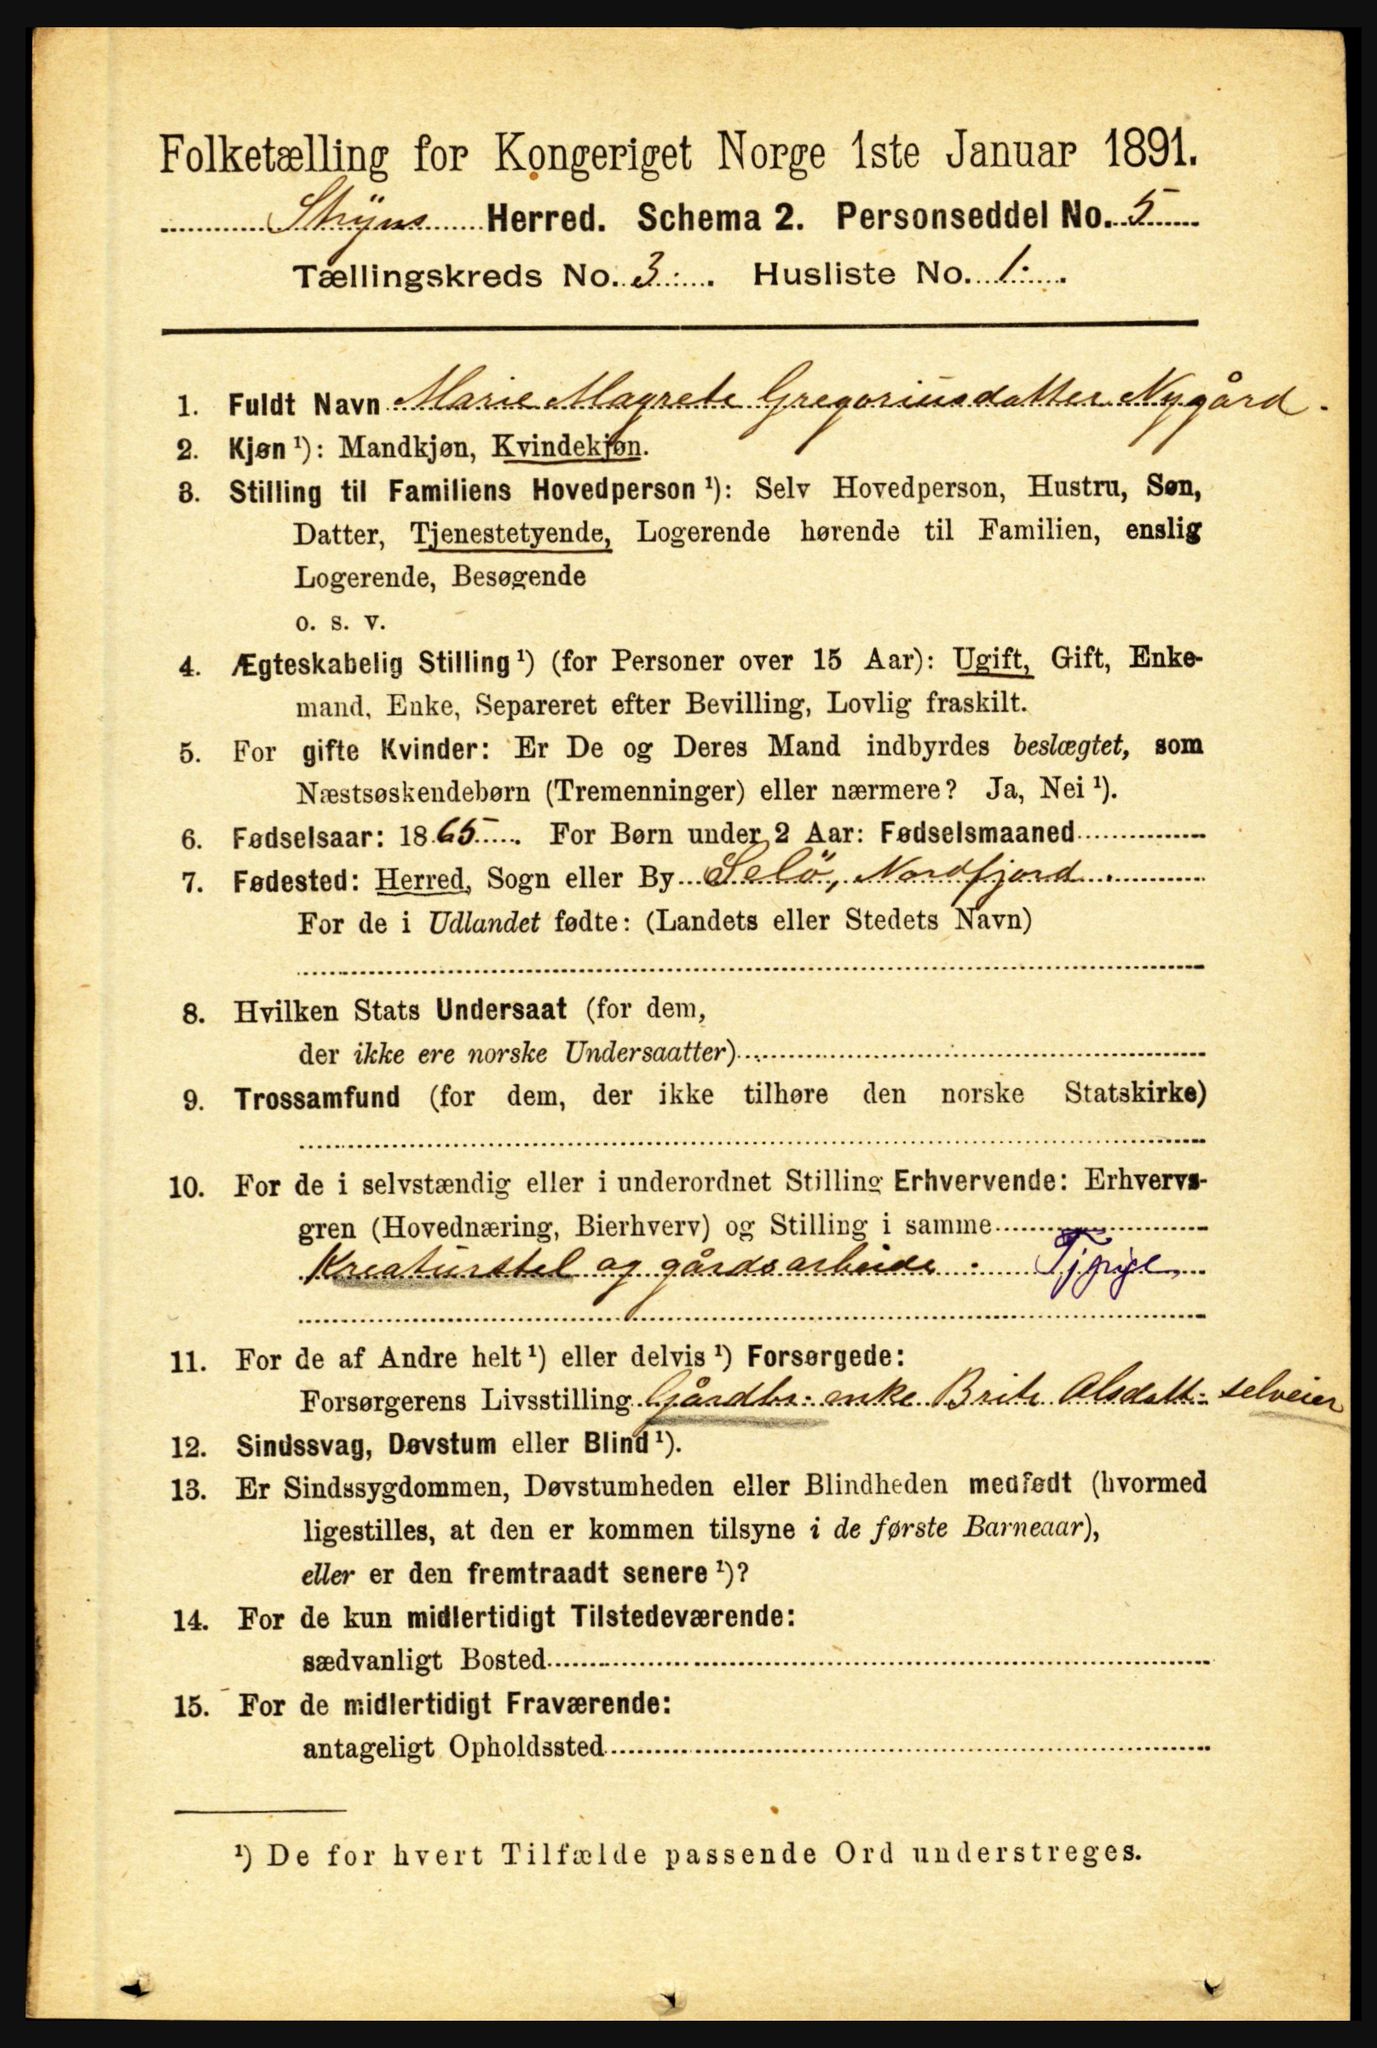 Folketælling for Kongeriget Norge 1ste Januar 1891.
Stryns Herred. Schema 2. Personseddel No. 5
Tællingskreds No. 3. Husliste No. 1.
1. Fuldt Navn Marie Magrete Gregoriusdatter Nygård.
2. Kjøn ¹): Mandkjøn, Kvindekjøn.
3. Stilling til Familiens Hovedperson ¹): Selv Hovedperson, Hustru, Søn,
Datter, Tjenestetyende, Logerende hørende til Familien, enslig
Logerende, Besøgende
o. s. v.
4. Ægteskabelig Stilling ¹) (for Personer over 15 Aar): Ugift, Gift, Enke-
mand, Enke, Separeret efter Bevilling, Lovlig fraskilt.
5. For gifte Kvinder: Er De og Deres Mand indbyrdes beslægtet, som
Næstsøskendebørn (Tremenninger) eller nærmere? Ja, Nei ¹).
6. Fødselsaar: 1865. For Børn under 2 Aar: Fødselsmaaned
7. Fødested: Herred, Sogn eller By Selö, Nordfjord.
For de i Udlandet fødte: (Landets eller Stedets Navn)
8. Hvilken Stats Undersaat (for dem,
der ikke ere norske Undersaatter)
9. Trossamfund (for dem, der ikke tilhøre den norske Statskirke)
10. For de i selvstændig eller i underordnet Stilling Erhvervende: Erhvervs-
gren (Hovednæring, Bierhverv) og Stilling i samme
Kreaturstel og gårdsarbeide. Tjpige
11. For de af Andre helt ¹) eller delvis ¹) Forsørgede:
Forsørgerens Livsstilling Gårdbr. enke Brite Olsdatt. selveier
12. Sindssvag, Døvstum eller Blind ¹).
13. Er Sindssygdommen, Døvstumheden eller Blindheden medfødt (hvormed
ligestilles, at den er kommen tilsyne i de første Barneaar),
eller er den fremtraadt senere ¹)?
14. For de kun midlertidigt Tilstedeværende:
sædvanligt Bosted
15. For de midlertidigt Fraværende:
antageligt Opholdssted
¹) De for hvert Tilfælde passende Ord understreges.